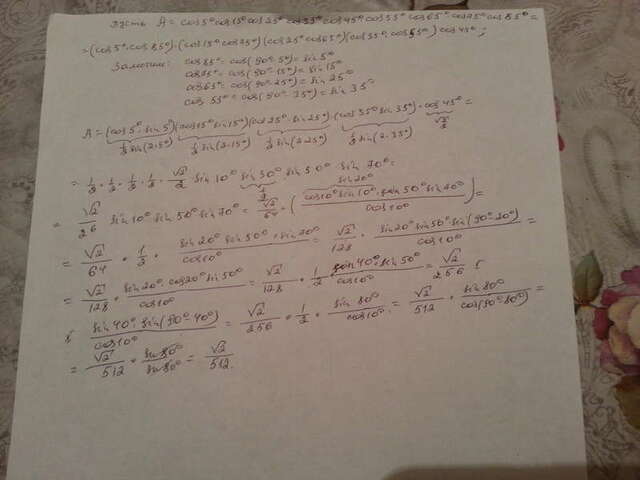 Пусть A = cos5° cos15° cos25° cos35° cos45° cos55° cos65° cos75° cos85° =
= (cos5°·cos85°)·(cos15° cos75°)(cos25° cos65°)(cos35°·cos55°) cos45° ;
Заметим: cos85° = cos(90°-5°) = sin5°
cos75° = cos(90°-15°) = sin15°
cos65° = cos(90°-25°) = sin25°
cos 55° = cos(90°-35°) = sin 35°
A = (cos5°·sin5°)(cos15° sin15°)(cos25°·sin25°)·(cos35° sin35°)·cos45° =
1/2 sin(2·5°) 1/2 sin(2·15°) 1/2 sin(2·25°) 1/2 sin(2·35°) √2/2
= 1/2 · 1/2 · 1/2 · 1/2 · √2/2 sin10° sin30° sin50° sin 70° =
1/2
= √2/26 sin10° sin50° sin70° = √2/64 · (cos10° sin10° · sin50° sin70°)/cos10° =
sin20°
= √2/64 · 1/2 · (sin20° sin50° · sin70°)/cos10° = √2/128 · (sin20° sin50° sin(90°-20°))/cos10° =
= √2/128 · (sin20° · cos20° sin50°)/cos10° = √2/128 · 1/2 · (sin40° · sin50°)/cos10° = √2/256 ·
· (sin40° · sin(90°-40°))/cos10° = √2/256 · 1/2 · sin80°/cos10° = √2/512 · sin80°/cos(90°-80°) =
= √2/512 · sin80°/sin80° = √2/512.